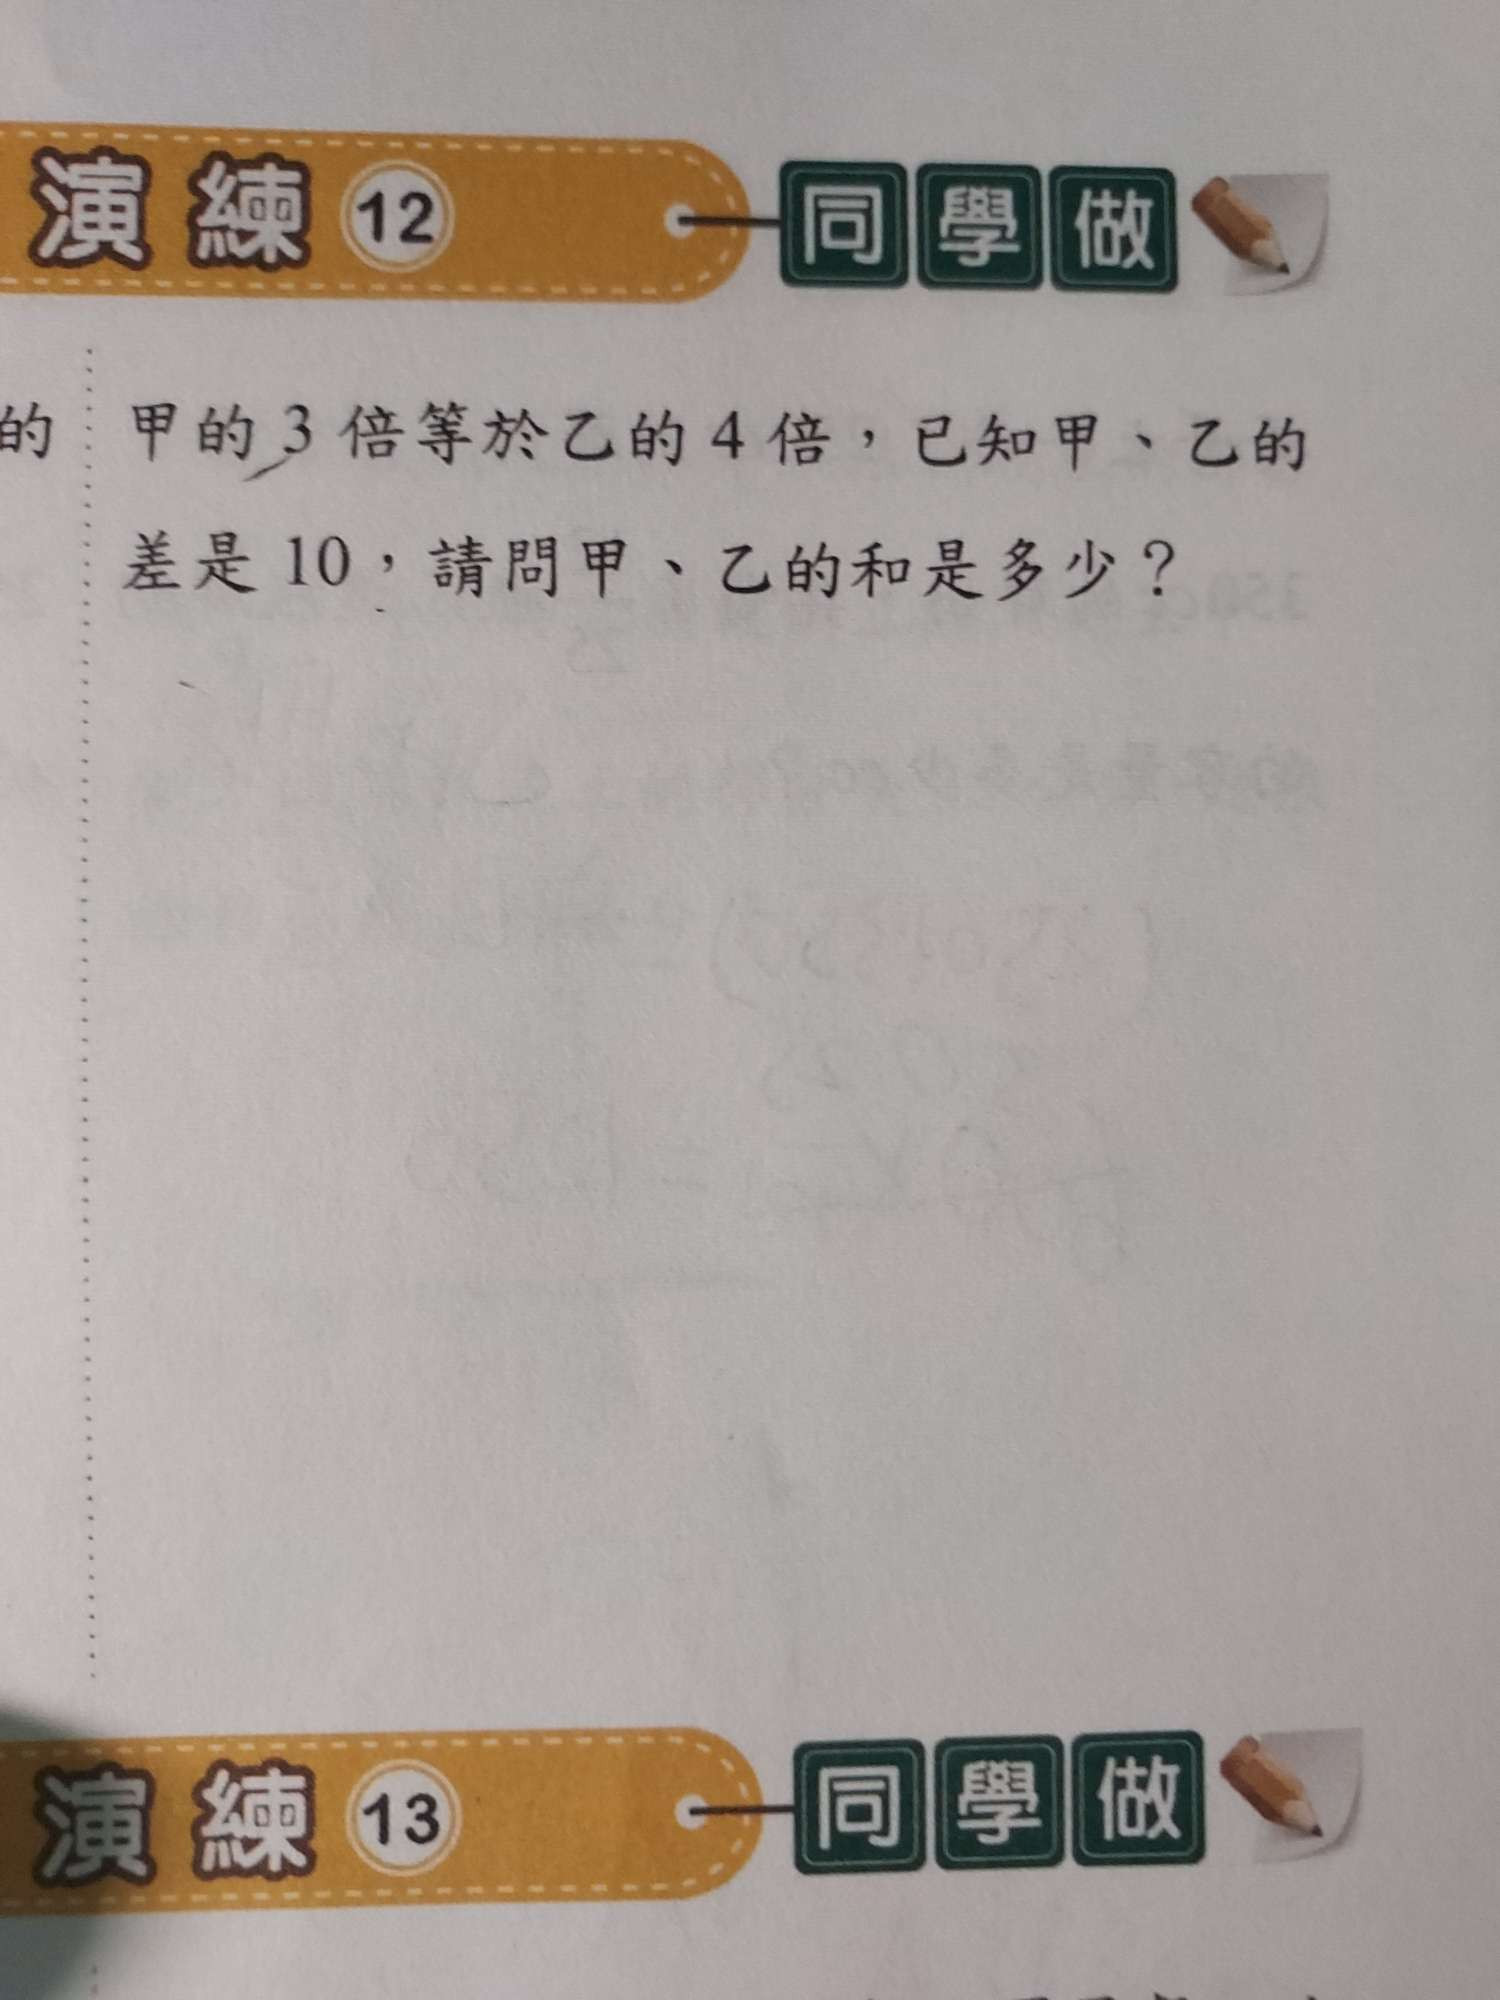 演練 12 同學做
的
甲的 3 倍等於乙的 4 倍，已知甲、乙的
差是 10，請問甲、乙的和是多少？
演練 13 同學做